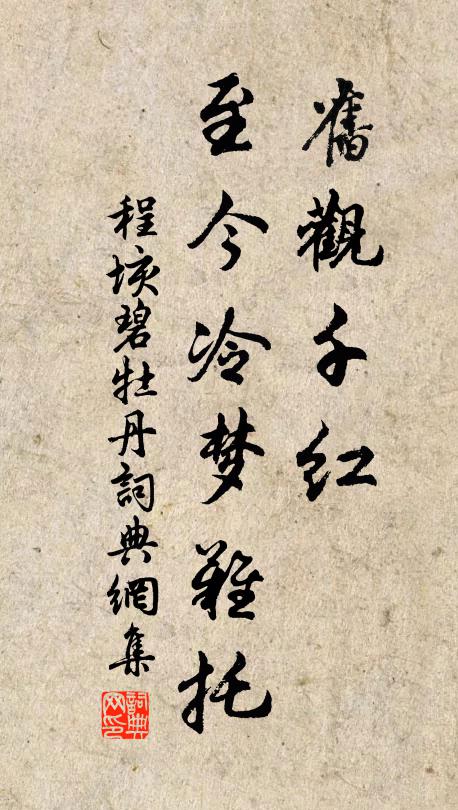 舊觀千紅
至今冷梦難托
程垓碧牡丹詞典網集
詞典网印